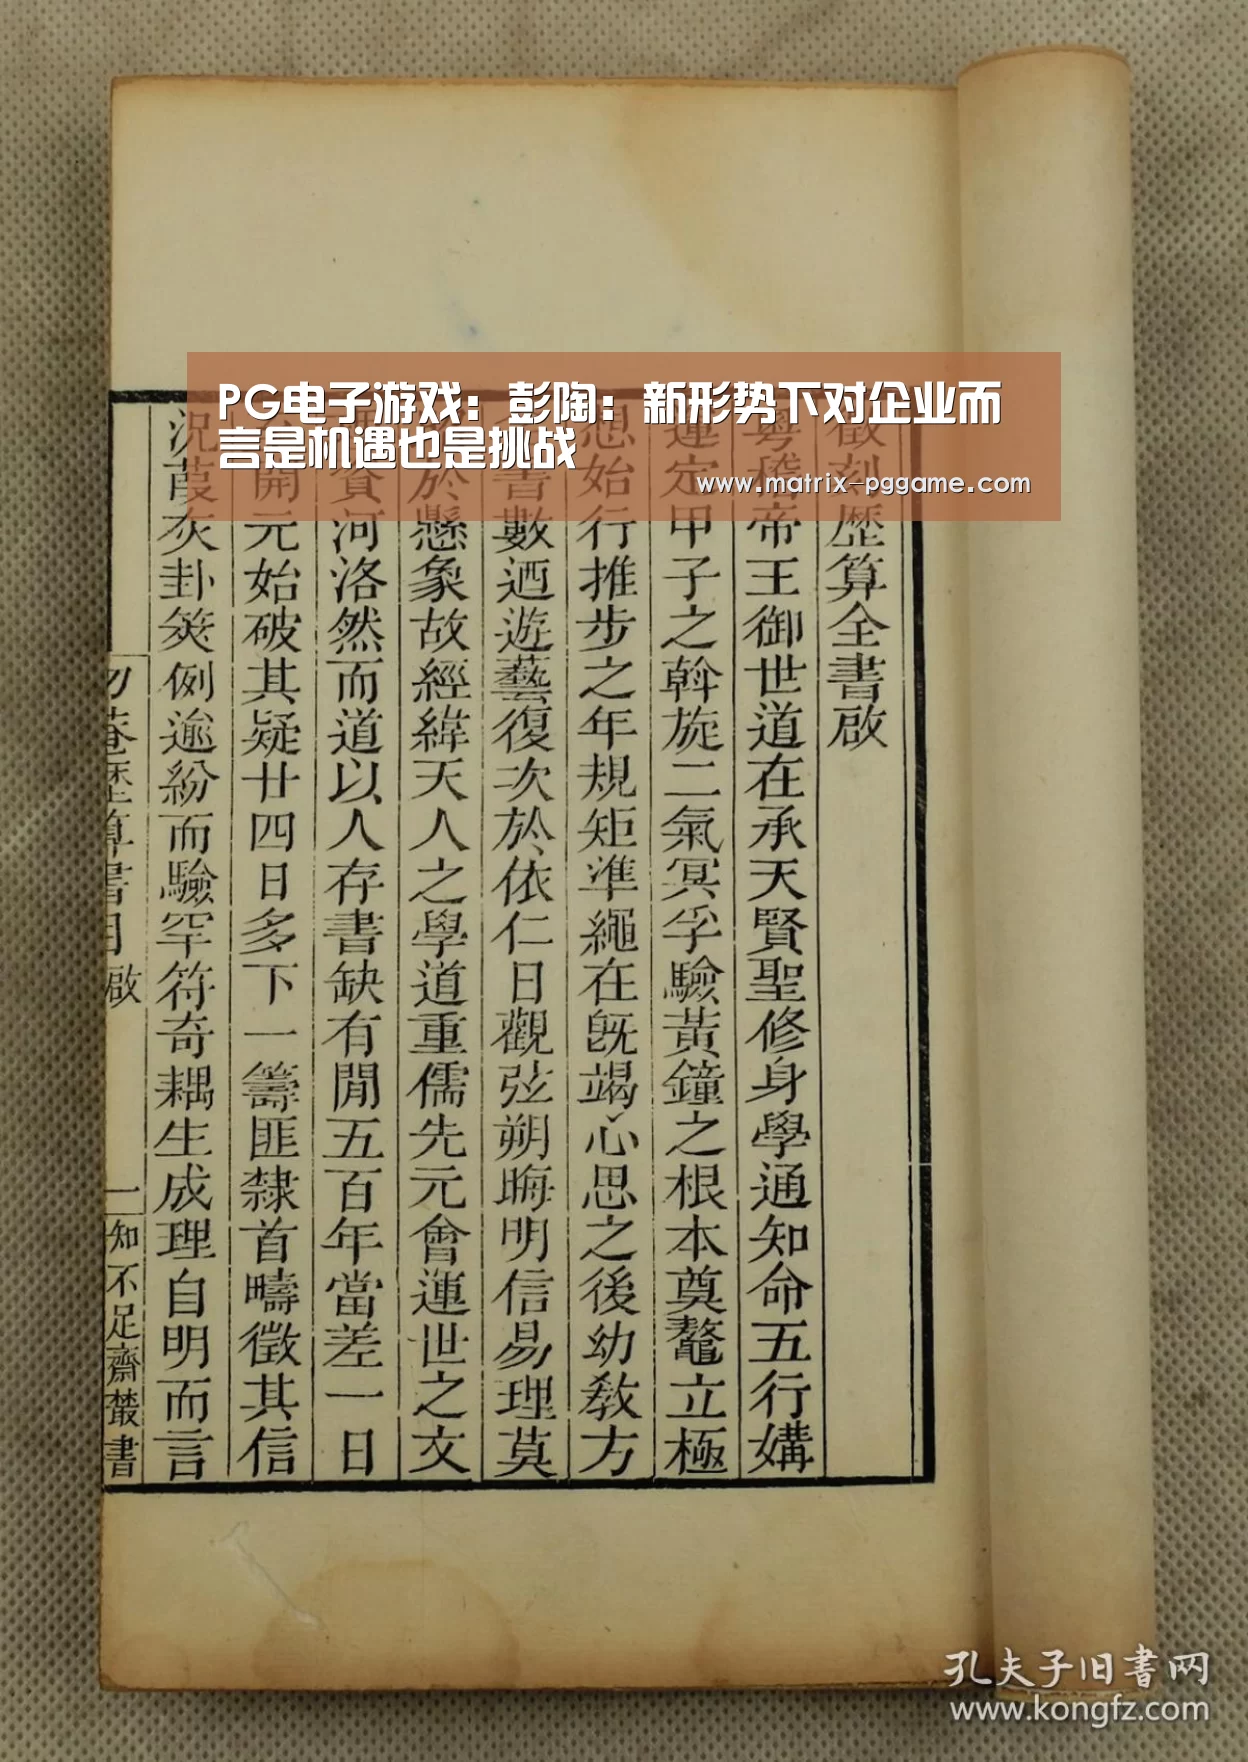 PG电子游戏：彭陶：新形势下对企业而
言是机遇也是挑战
www.matrix-pggame.com
徵刻歷算全書啟
粤稽帝王御世道在承天賢聖修身學通知命五行媾
運定甲子之斡旋二氣冥孚驗黃鐘之根本奠鼇立極
思始行推步之年規矩準繩在旣竭心思之後幼教方
書數迺遊藝復次於依仁日觀弦朔晦明信易理莫
於懸象故經緯天人之學道重儒先元會運世之文
河洛然而道以人存書缺有閒五百年當差一日
開元始破其疑廿四日多下一籌匪隸首疇徵其信
況葭灰卦筴例逾紛而驗罕符奇耦生成理自明而言
勿菴歷算書目啟
一
知不足齋叢書
孔夫子旧书网
www.kongfz.com